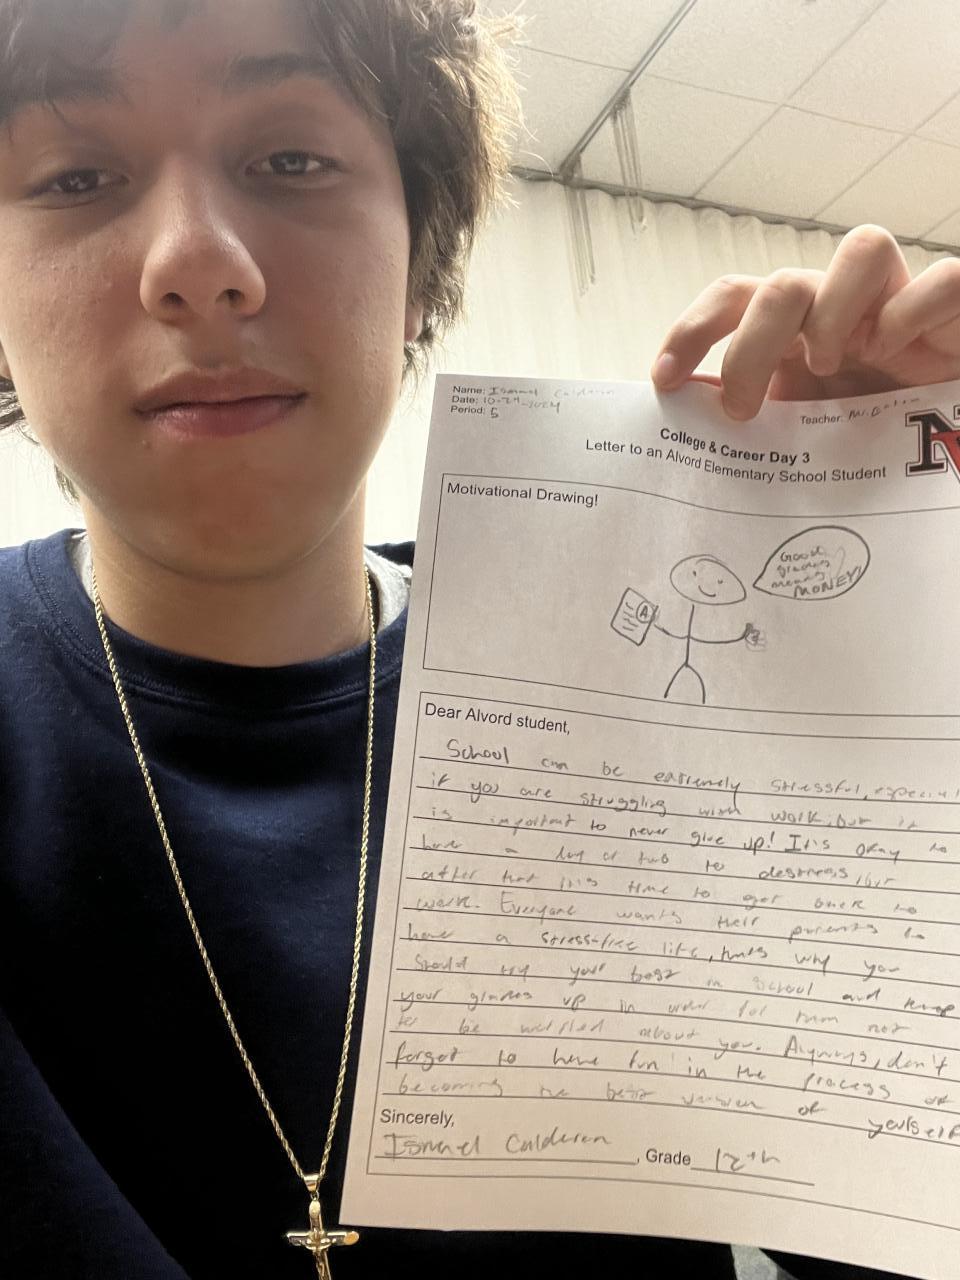 Name: Ismael Calderon
Date: 10-29-2024
Period: 5
Teacher: Mr.
N
College & Career Day 3
Letter to an Alvord Elementary School Student
Motivational Drawing!
Good
grades
means
MONEY!
A
Dear Alvord student,
School can be extremely stressful, especial
if you are struggling with work, but it
is important to never give up! It's okay to
have a day or two to destress, but
after that it's time to get back to
work. Everyone wants their parents to
have a stress-free life, thats why you
should try your best in school and keep
your grades up in order for them not
to be worried about you. Anyways, don't
forget to have fun in the process of
becoming the best version of yourself
Sincerely,
Ismael Calderon, Grade 12th